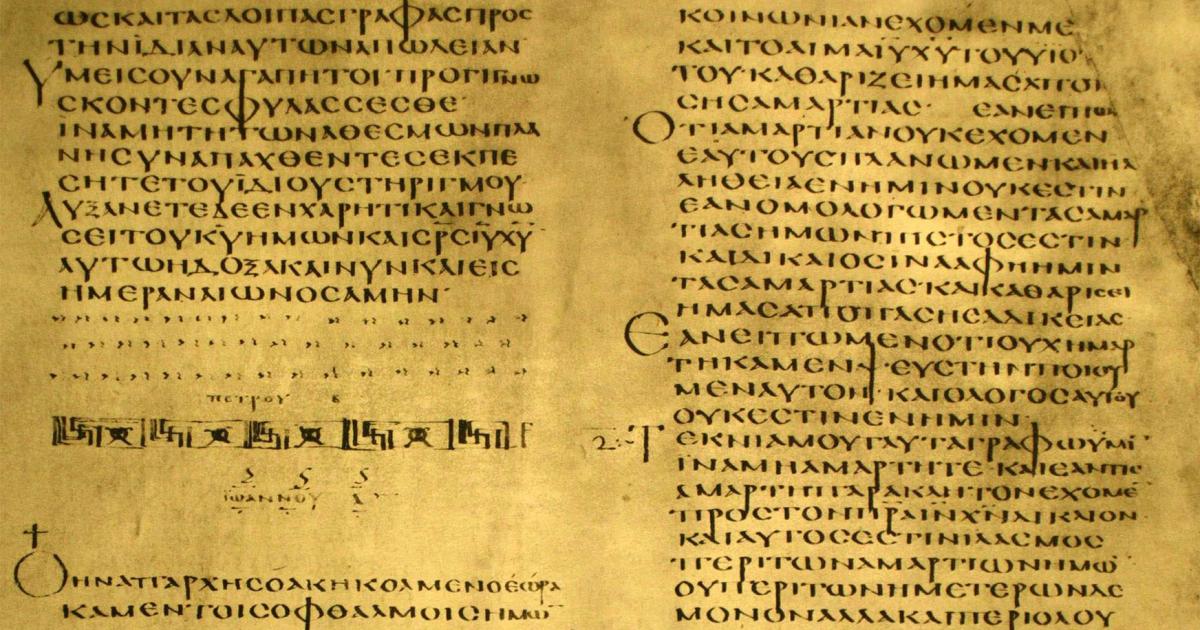 ΩϹΚΑΙΤΑϹΛΟΙΠΑϹΓΡΑΦΑϹΠΡΟϹ
ΤΗΝΪΔΙΑΝΑΥΤΩΝΑΠΩΛΕΙΑΝ
ΥΜΕΙϹΟΥΝΑΓΑΠΗΤΟΙ·ΠΡΟΓΙΝΩ
ϹΚΟΝΤΕϹΦΥΛΑϹϹΕϹΘΕ
ΙΝΑΜΗΤΗΤΩΝΑΘΕϹΜΩΝΠΛΑ
ΝΗϹΥΝΑΠΑΧΘΕΝΤΕϹΕΚΠΕ
ϹΗΤΕΤΟΥΪΔΙΟΥϹΤΗΡΙΓΜΟΥ
ΑΥΞΑΝΕΤΕΔΕΕΝΧΑΡΗΤΙΚΑΙΓΝΩ
ϹΕΙΤΟΥΚ̅Υ̅ΗΜΩΝΚΑΙϹΡ̅Ϲ̅Ι̅Υ̅Χ̅Υ̅
ΑΥΤΩΗΔΟΞΑΚΑΙΝΥΝΚΑΙΕΙϹ
ΗΜΕΡΑΝΑΙΩΝΟϹΑΜΗΝ·
ΠΕΤΡΟΥ Β
ΙΩΑΝΝΟΥ Α
ΟΗΝΑΠΑΡΧΗϹΟΑΚΗΚΟΑΜΕΝΟΕΩΡΑ
ΚΑΜΕΝΤΟΙϹΟΦΘΑΛΜΟΙϹΗΜΩ
ΚΟΙΝΩΝΙΑΝΕΧΟΜΕΝΜΕ
ΚΑΙΤΟΑΙΜΑΙ̅Υ̅Χ̅Υ̅ΤΟΥΥΙΟΥ
ΤΟΥ·ΚΑΘΑΡΙΖΕΙΗΜΑϹΑΠΟΠΑ
ϹΗϹΑΜΑΡΤΙΑϹ· ΕΑΝΕΠΩΜ
ΟΤΙΑΜΑΡΤΙΑΝΟΥΚΕΧΟΜΕΝ
ΕΑΥΤΟΥϹΠΛΑΝΩΜΕΝΚΑΙΗΑ
ΛΗΘΕΙΑΕΝΗΜΙΝΟΥΚΕϹΤΙΝ
ΕΑΝΟΜΟΛΟΓΩΜΕΝΤΑϹΑΜΑΡ
ΤΙΑϹΗΜΩΝΠΙϹΤΟϹΕϹΤΙΝ
ΚΑΙΔΙΚΑΙΟϹΙΝΑΑΦΗΗΜΙΝ
ΤΑϹΑΜΑΡΤΙΑϹ·ΚΑΙΚΑΘΑΡΙϹΕΙ
ΗΜΑϹΑΠΟΠΑϹΗϹΑΔΙΚΕΙΑϹ
ΕΑΝΕΙΠΩΜΕΝΟΤΙΟΥΧΗΜΑΡ
ΤΗΚΑΜΕΝ·ΨΕΥϹΤΗΝΠΟΙΟΥ
ΜΕΝΑΥΤΟΝ·ΚΑΙΟΛΟΓΟϹΑΥΤΟΥ
ΟΥΚΕϹΤΙΝΕΝΗΜΙΝ·
ΤΕΚΝΙΑΜΟΥΤΑΥΤΑΓΡΑΦΩΥΜΙ
ΙΝΑΜΗΑΜΑΡΤΗΤΕ·ΚΑΙΕΑΝΤΙϹ
ΑΜΑΡΤΗΠΑΡΑΚΛΗΤΟΝΕΧΟΜΕ
ΠΡΟϹΤΟΝΠ̅Ρ̅Α̅Ι̅Ν̅Χ̅Ν̅ΔΙΚΑΙΟΝ
ΚΑΙΑΥΤΟϹΕϹΤΙΝΙΛΑϹΜΟϹ
ΠΕΡΙΤΩΝΑΜΑΡΤΙΩΝΗΜΩ
ΟΥΠΕΡΙΤΩΝΗΜΕΤΕΡΩΝΔΕ
ΜΟΝΟΝΑΛΛΑΚΑΙΠΕΡΙΟΛΟΥ